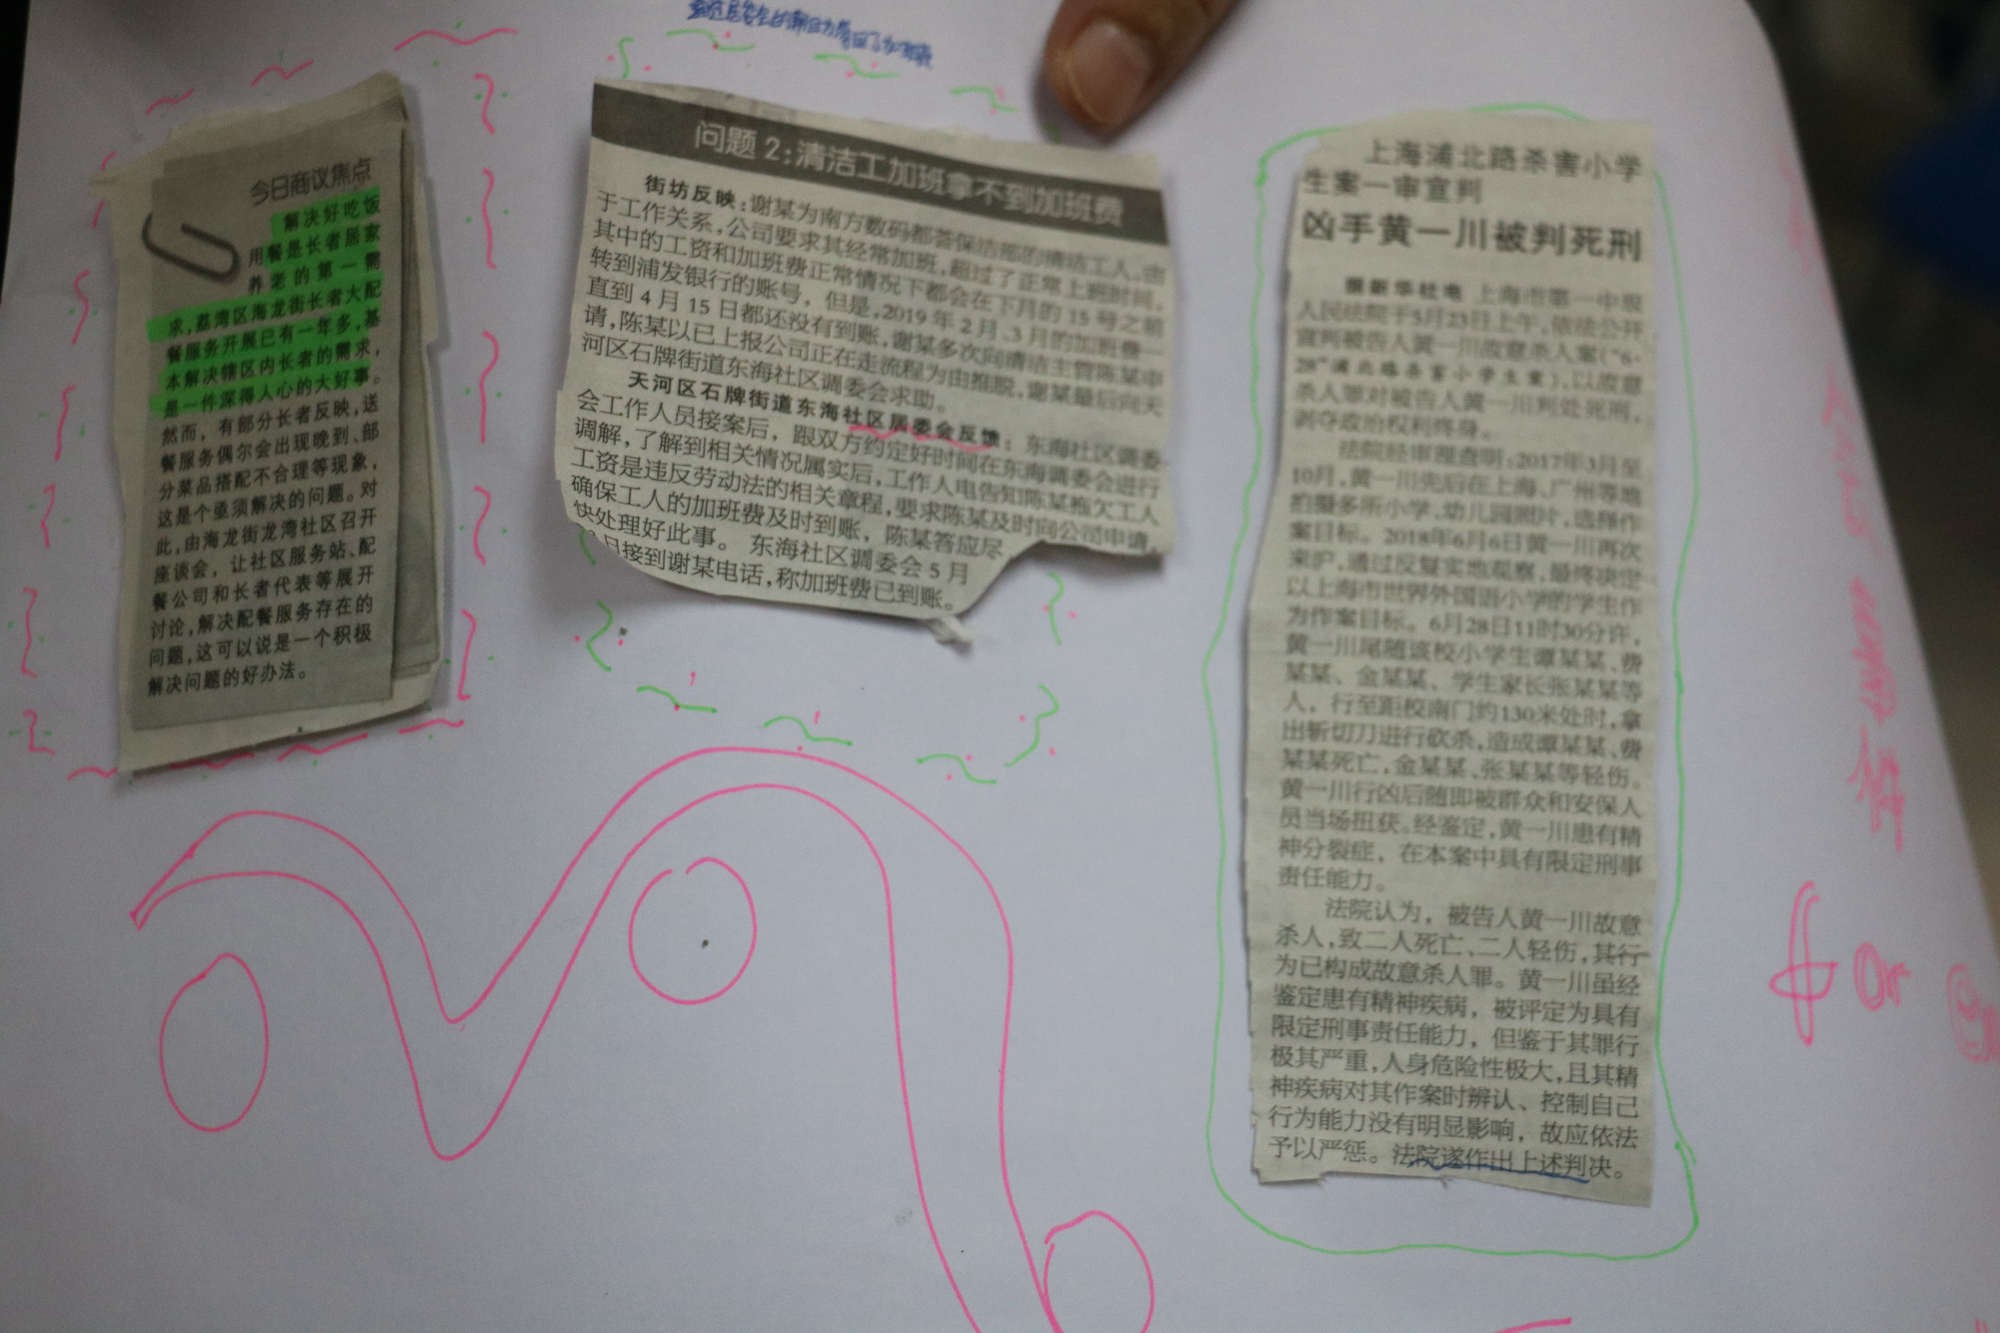 今日商议焦点
解决好吃饭
用餐是长者居家
养老的第一需
求,荔湾区海龙街长者大配
餐服务开展已有一年多,基
本解决辖区内长者的需求,
是一件深得人心的大好事。
然而，有部分长者反映,送
餐服务偶尔会出现晚到、部
分菜品搭配不合理等现象，
这是个亟须解决的问题。对
此,由海龙街龙湾社区召开
座谈会，让社区服务站、配
餐公司和长者代表等展开
讨论,解决配餐服务存在的
问题,这可以说是一个积极
解决问题的好办法。
问题2:清洁工加班拿不到加班费
街坊反映:谢某为南方数码都荟保洁部的清洁工人,由
于工作关系,公司要求其经常加班,超过了正常上班时间,
其中的工资和加班费正常情况下都会在下月的15号之前
转到浦发银行的账号，但是,2019年2月、3月的加班费一
直到4月15日都还没有到账,谢某多次向清洁主管陈某申
请,陈某以已上报公司正在走流程为由推脱,谢某最后向天
河区石牌街道东海社区调委会求助。
天河区石牌街道东海社区居委会反馈：东海社区调委
会工作人员接案后，跟双方约定好时间在东海调委会进行
调解,了解到相关情况属实后,工作人电告知陈某拖欠工人
工资是违反劳动法的相关章程,要求陈某及时向公司申请,
确保工人的加班费及时到账，陈某答应尽
快处理好此事。东海社区调委会5月
日接到谢某电话,称加班费已到账。
上海浦北路杀害小学
生案一审宣判
凶手黄一川被判死刑
据新华社电 上海市第一中级
人民法院于5月23日上午,依法公开
宣判被告人黄一川故意杀人案(“6·
28”浦北路杀害小学生案),以故意
杀人罪对被告人黄一川判处死刑,
剥夺政治权利终身。
法院经审理查明:2017年3月至
10月,黄一川先后在上海、广州等地
拍摄多所小学、幼儿园照片,选择作
案目标。2018年6月6日黄一川再次
来沪,通过反复实地观察,最终决定
以上海市世界外国语小学的学生作
为作案目标。6月28日11时30分许,
黄一川尾随该校小学生谭某某、费
某某、金某某、学生家长张某某等
人，行至距校南门约130米处时,拿
出斩切刀进行砍杀,造成谭某某、费
某某死亡,金某某、张某某等轻伤。
黄一川行凶后随即被群众和安保人
员当场扭获。经鉴定,黄一川患有精
神分裂症，在本案中具有限定刑事
责任能力。
法院认为，被告人黄一川故意
杀人,致二人死亡、二人轻伤,其行
为已构成故意杀人罪。黄一川虽经
鉴定患有精神疾病，被评定为具有
限定刑事责任能力，但鉴于其罪行
极其严重,人身危险性极大,且其精
神疾病对其作案时辨认、控制自己
行为能力没有明显影响，故应依法
予以严惩。法院遂作出上述判决。
or